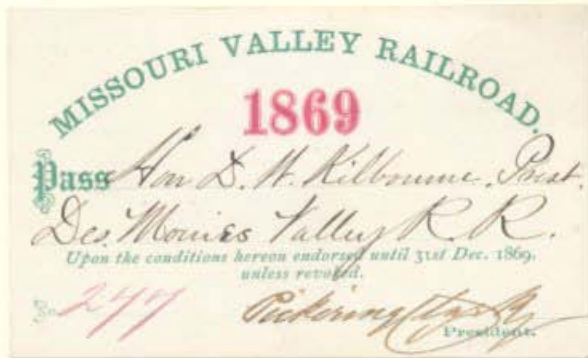 MISSOURI VALLEY RAILROAD.
1869
Pass Hon D. W. Kilbourne, Prest
Des Moines Valley R. R.
Upon the conditions hereon endorsed until 31st Dec. 1869,
unless revoked.
No. 247
President.